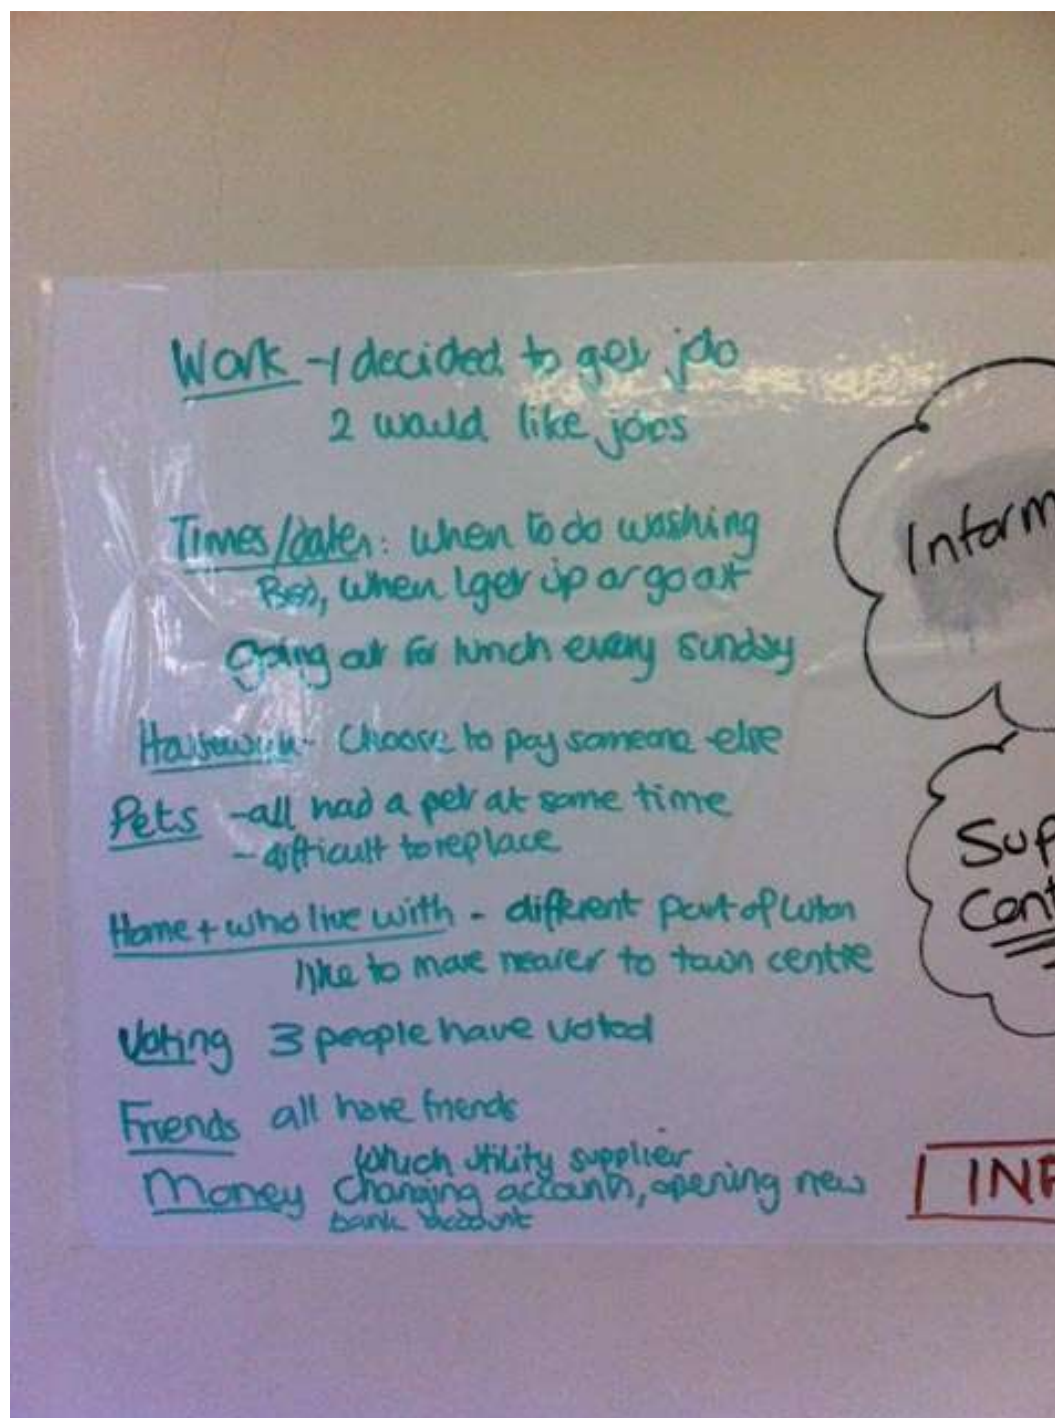 Work - 1 decided to get job
2 would like jobs
Times/dates: when to do washing
Bed, when I get up or go out
Going out for lunch every Sunday
Housework - Choose to pay someone else
Pets - all had a pet at some time
- difficult to replace
Home + who live with - different part of Luton
like to move nearer to town centre
Voting 3 people have voted
Friends all have friends
Which utility supplier
Money Changing accounts, opening new
bank account
Inform
Sup
Cent
INF